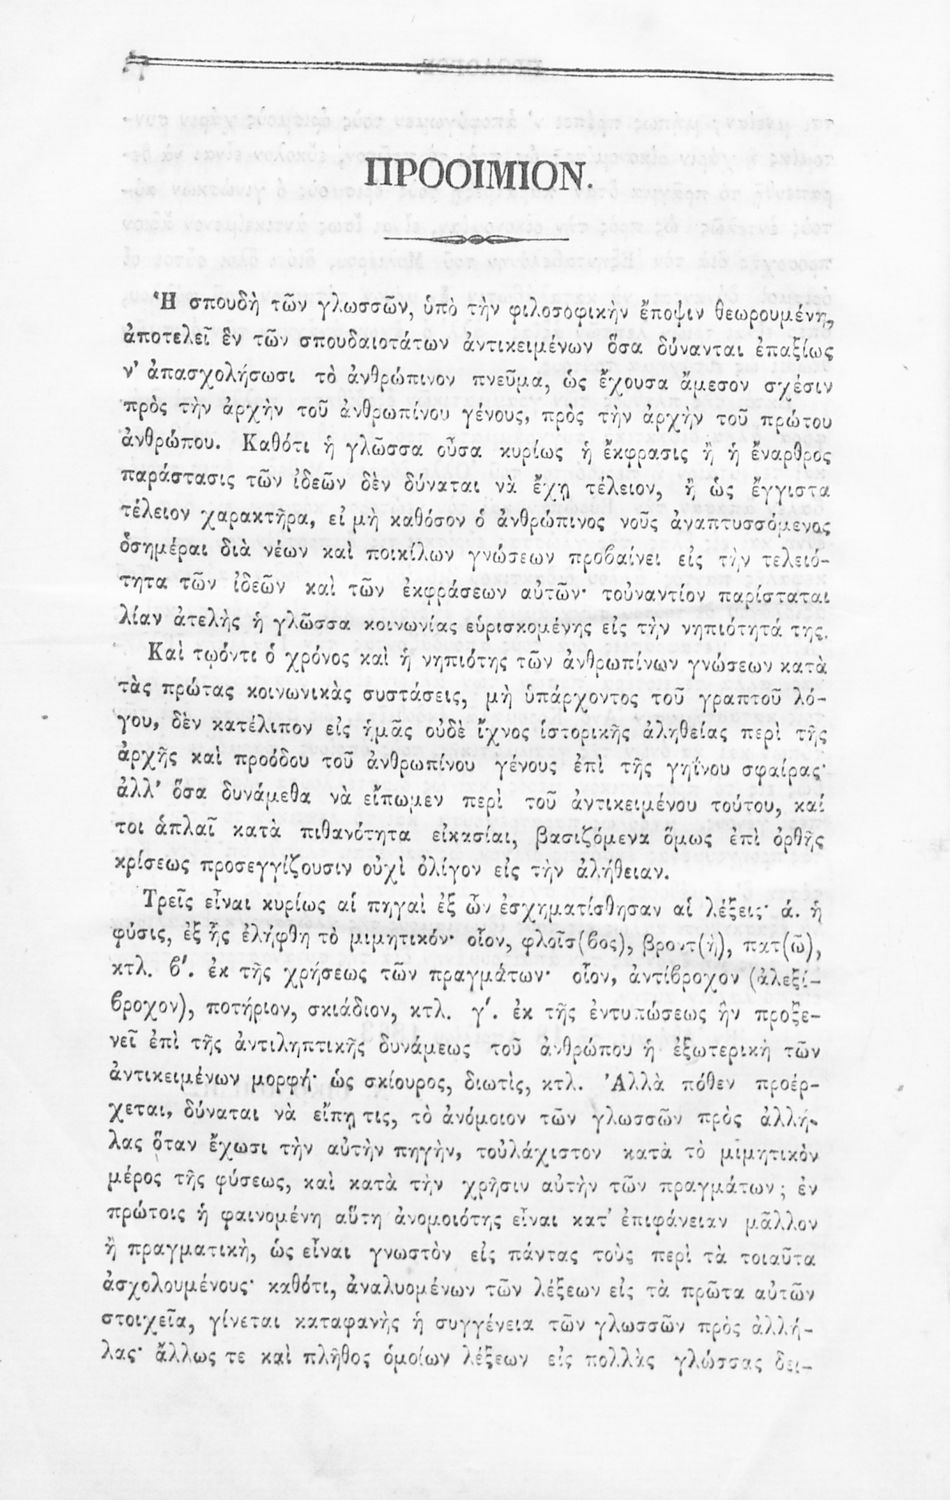 ΠΡΟΟΙΜΙΟΝ.
Ἡ σπουδὴ τῶν γλωσσῶν, ὑπὸ τὴν φιλοσοφικὴν ἔποψιν θεωρουμένη,
ἀποτελεῖ ἓν τῶν σπουδαιοτάτων ἀντικειμένων ὅσα δύνανται ἐπαξίως
ν' ἀπασχολήσωσι τὸ ἀνθρώπινον πνεῦμα, ὡς ἔχουσα ἄμεσον σχέσιν
πρὸς τὴν ἀρχὴν τοῦ ἀνθρωπίνου γένους, πρὸς τὴν ἀρχὴν τοῦ πρώτου
ἀνθρώπου. Καθότι ἡ γλῶσσα οὖσα κυρίως ἡ ἔκφρασις ἢ ἡ ἔναρθρος
παράστασις τῶν ἰδεῶν δὲν δύναται νὰ ἔχῃ τέλειον, ἢ ὡς ἔγγιστα
τέλειον χαρακτῆρα, εἰ μὴ καθόσον ὁ ἀνθρώπινος νοῦς ἀναπτυσσόμενος
ὁσημέραι διὰ νέων καὶ ποικίλων γνώσεων προβαίνει εἰς τὴν τελειό-
τητα τῶν ἰδεῶν καὶ τῶν ἐκφράσεων αὐτῶν· τοὐναντίον παρίσταται
λίαν ἀτελὴς ἡ γλῶσσα κοινωνίας εὑρισκομένης εἰς τὴν νηπιότητά της.
Καὶ τῳόντι ὁ χρόνος καὶ ἡ νηπιότης τῶν ἀνθρωπίνων γνώσεων κατὰ
τὰς πρώτας κοινωνικὰς συστάσεις, μὴ ὑπάρχοντος τοῦ γραπτοῦ λό-
γου, δὲν κατέλιπον εἰς ἡμᾶς οὐδὲ ἴχνος ἱστορικῆς ἀληθείας περὶ τῆς
ἀρχῆς καὶ προόδου τοῦ ἀνθρωπίνου γένους ἐπὶ τῆς γηΐνου σφαίρας·
ἀλλ' ὅσα δυνάμεθα νὰ εἴπωμεν περὶ τοῦ ἀντικειμένου τούτου, καί
τοι ἁπλαῖ κατὰ πιθανότητα εἰκασίαι, βασιζόμενα ὅμως ἐπὶ ὀρθῆς
κρίσεως προσεγγίζουσιν οὐχὶ ὀλίγον εἰς τὴν ἀλήθειαν.
Τρεῖς εἶναι κυρίως αἱ πηγαὶ ἐξ ὧν ἐσχηματίσθησαν αἱ λέξεις· ά. ἡ
φύσις, ἐξ ἧς ἐλήφθη τὸ μιμητικόν· οἷον, φλοῖσ(βος), βροντ(ὴ), πατ(ῶ),
κτλ. β'. ἐκ τῆς χρήσεως τῶν πραγμάτων· οἷον, ἀντίβροχον (ἀλεξί-
βροχον), ποτήριον, σκιάδιον, κτλ. γ'. ἐκ τῆς ἐντυπώσεως ἣν προξε-
νεῖ ἐπὶ τῆς ἀντιληπτικῆς δυνάμεως τοῦ ἀνθρώπου ἡ ἐξωτερικὴ τῶν
ἀντικειμένων μορφή· ὡς σκίουρος, διωτὶς, κτλ. Ἀλλὰ πόθεν προέρ-
χεται, δύναται νὰ εἴπῃ τις, τὸ ἀνόμοιον τῶν γλωσσῶν πρὸς ἀλλή-
λας ὅταν ἔχωσι τὴν αὐτὴν πηγὴν, τοὐλάχιστον κατὰ τὸ μιμητικὸν
μέρος τῆς φύσεως, καὶ κατὰ τὴν χρῆσιν αὐτὴν τῶν πραγμάτων; ἐν
πρώτοις ἡ φαινομένη αὕτη ἀνομοιότης εἶναι κατ' ἐπιφάνειαν μᾶλλον
ἢ πραγματικὴ, ὡς εἶναι γνωστὸν εἰς πάντας τοὺς περὶ τὰ τοιαῦτα
ἀσχολουμένους· καθότι, ἀναλυομένων τῶν λέξεων εἰς τὰ πρῶτα αὐτῶν
στοιχεῖα, γίνεται καταφανὴς ἡ συγγένεια τῶν γλωσσῶν πρὸς ἀλλή-
λας· ἄλλως τε καὶ πλῆθος ὁμοίων λέξεων εἰς πολλὰς γλώσσας δει-